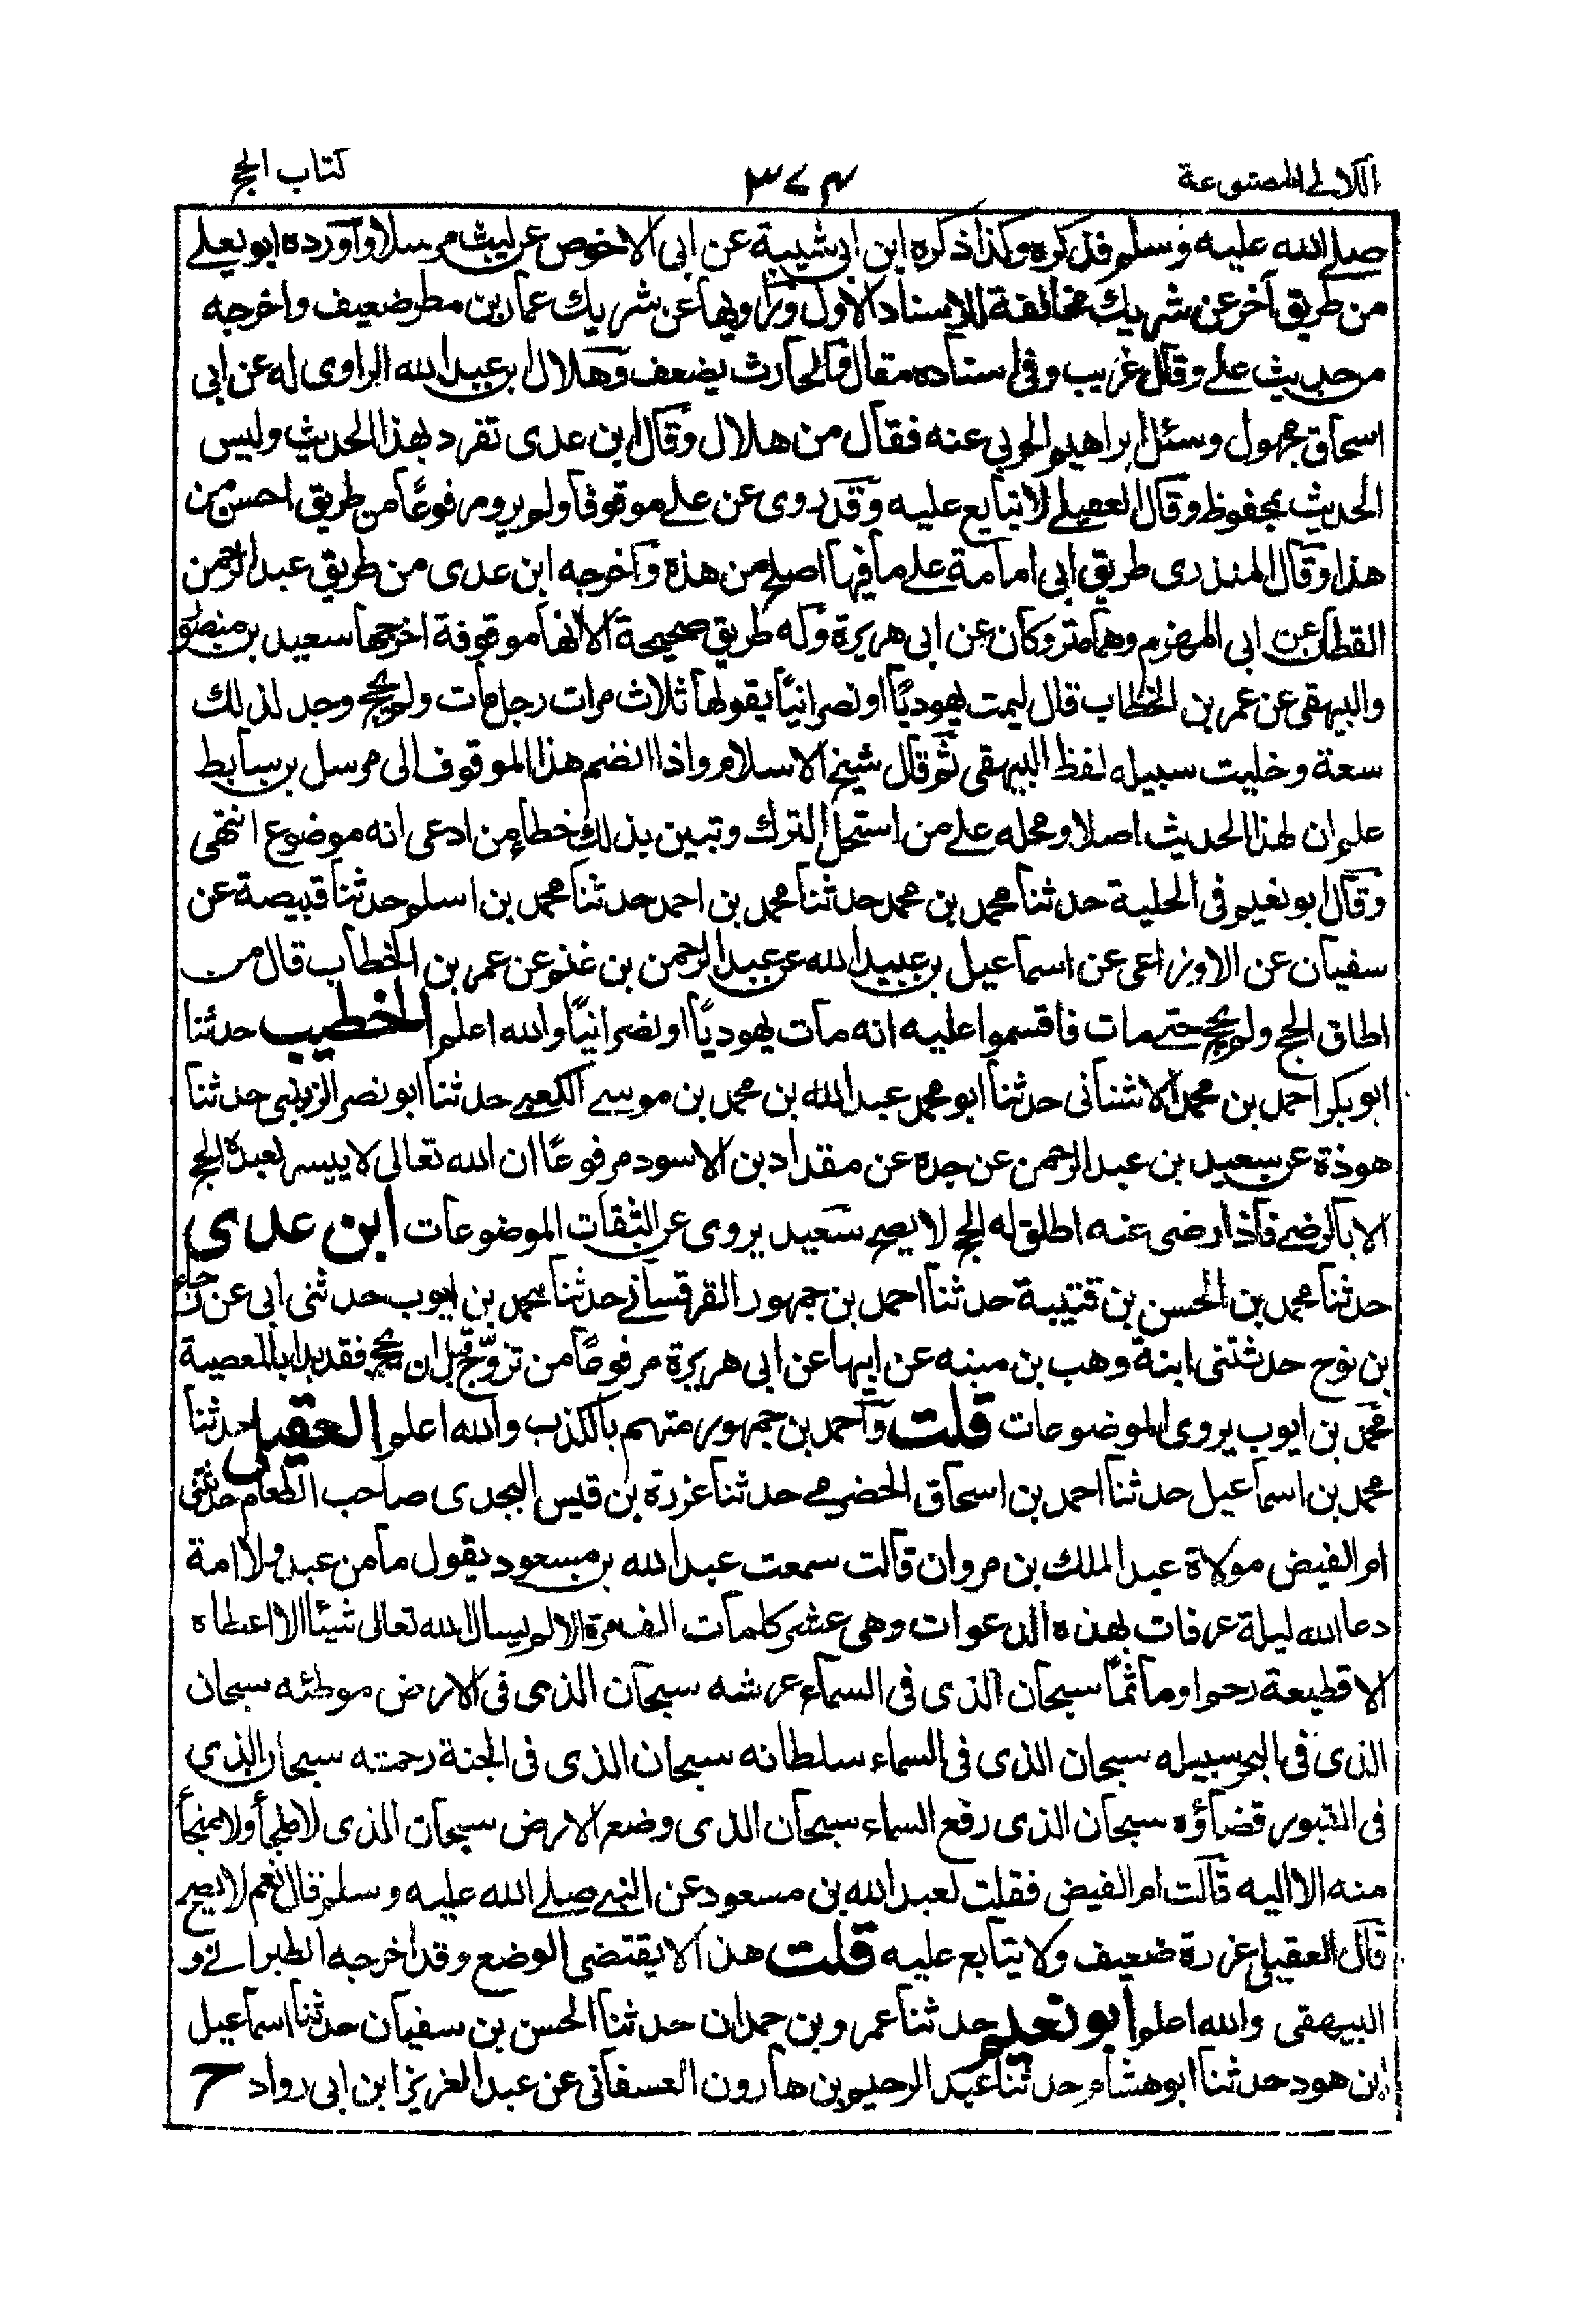 اللآلى المصنوعة
٣٧٤
كتاب الحج
صلے الله عليه وسلم فذكره وكذا ذكره ابن ابى شيبة عن ابى الاخوص عن ليث مرسلا وآورده ابو يعلے
من طريق آخر عن شريك مخالفة للاسناد الاول وراويها عن شريك عمار بن مطر ضعيف واخرجه
من حديث علے وقال غريب وفى اسناده مقال والحارث يضعف وهلال بن عبد الله الراوى له عن ابى
اسحاق مجهول وسئل ابراهيم الحربى عنه فقال من هلال وقال ابن عدى تفرد بهذا الحديث وليس
الحديث بمحفوظ وقال العقيلے لا يتابع عليه وقد روى عن علے موقوفا ولم يرو مرفوعًا من طريق احسن من
هذا وقال المنذرى طريق ابى امامة علے ما فيها اصلح من هذه واخرجه ابن عدى من طريق عبد الرحمن
القطان عن ابى المهزم وهما متروكان عن ابى هريرة وله طريق صحيحة الا انها موقوفة اخرجها سعيد بن منصور
والبيهقى عن عمر بن الخطاب قال ليمت يهوديًا او نصرانيًا يقولها ثلاث مرات رجل مات ولم يحج وجد لذلك
سعة وخليت سبيله لفظ البيهقى ثم قال شيخ الاسلام واذا انضم هذا الموقوف الى مرسل بن سابط
علم ان لهذا الحديث اصلا ومحله علے من استحل الترك وتبين بذلك خطاء من ادعى انه موضوع انتهى
وقال ابو نعيم فى الحلية حدثنا محمد بن محمد حدثنا محمد بن احمد حدثنا محمد بن اسلم حدثنا قبيصة عن
سفيان عن الاوزاعى عن اسماعيل بن عبيد الله عن عبد الرحمن بن غنم عن عمر بن الخطاب قال من
اطاق الحج ولم يحج حتے مات فاقسموا عليه انه مات يهوديًا او نصرانيًا والله اعلم الخطيب حدثنا
ابو بكر احمد بن محمد الاشنانى حدثنا ابو محمد عبد الله بن محمد بن موسے الكعبے حدثنا ابو نصر الزينبى حدثنا
هوذة عن سعيد بن عبد الرحمن عن جده عن مقداد بن الاسود مرفوعًا ان الله تعالى لا ييسر لعبده الحج
الا بالرضے فاذا رضى عنه اطلق له الحج لا يصح سعيد يروى عن الثقات الموضوعات ابن عدى
حدثنا محمد بن الحسن بن قتيبة حدثنا احمد بن جمهور القرقسانے حدثنا محمد بن ايوب حدثنى ابى عن رجاء
بن نوح حدثتنى ابنة وهب بن منبه عن ابيها عن ابى هريرة مرفوعًا من تزوّج قبل ان يحج فقد بدا بالمعصية
محمد بن ايوب يروى الموضوعات قلت وآحمد بن جمهور متهم بالكذب والله اعلم العقيلى حدثنا
محمد بن اسماعيل حدثنا احمد بن اسحاق الحضرمے حدثنا عزرة بن قيس اليحمدى صاحب الطعام حدثتنى
ام الفيض مولاة عبد الملك بن مروان قالت سمعت عبد الله بن مسعود يقول ما من عبد ولا امة
دعا الله ليلة عرفات بهذه الدعوات وهى عشر كلمات الف مرة الا لم يسال الله تعالى شيئا الا اعطاه
الا قطيعة رحم او ماثمًا سبحان الذى فى السماء عرشه سبحان الذى فى الارض موطئه سبحان
الذى فى البحر سبيله سبحان الذى فى السماء سلطانه سبحان الذى فى الجنة رحمته سبحان الذى
فى القبور قضاؤه سبحان الذى رفع السماء سبحان الذى وضع الارض سبحان الذى لا ملجأ ولا منجأ
منه الا اليه قالت ام الفيض فقلت لعبد الله بن مسعود عن النبے صلے الله عليه وسلم قال نعم لا يصح
قال العقيلى عزرة ضعيف ولا يتابع عليه قلت هذا لا يقتضى الوضع وقد اخرجه الطبرانے و
البيهقى والله اعلم ابو نعيم حدثنا عمرو بن حمدان حدثنا الحسن بن سفيان حدثنا اسماعيل
بن هود حدثنا ابو هشام حدثنا عبد الرحيم بن هارون الغسانى عن عبد العزيز ابن ابى رواد ح